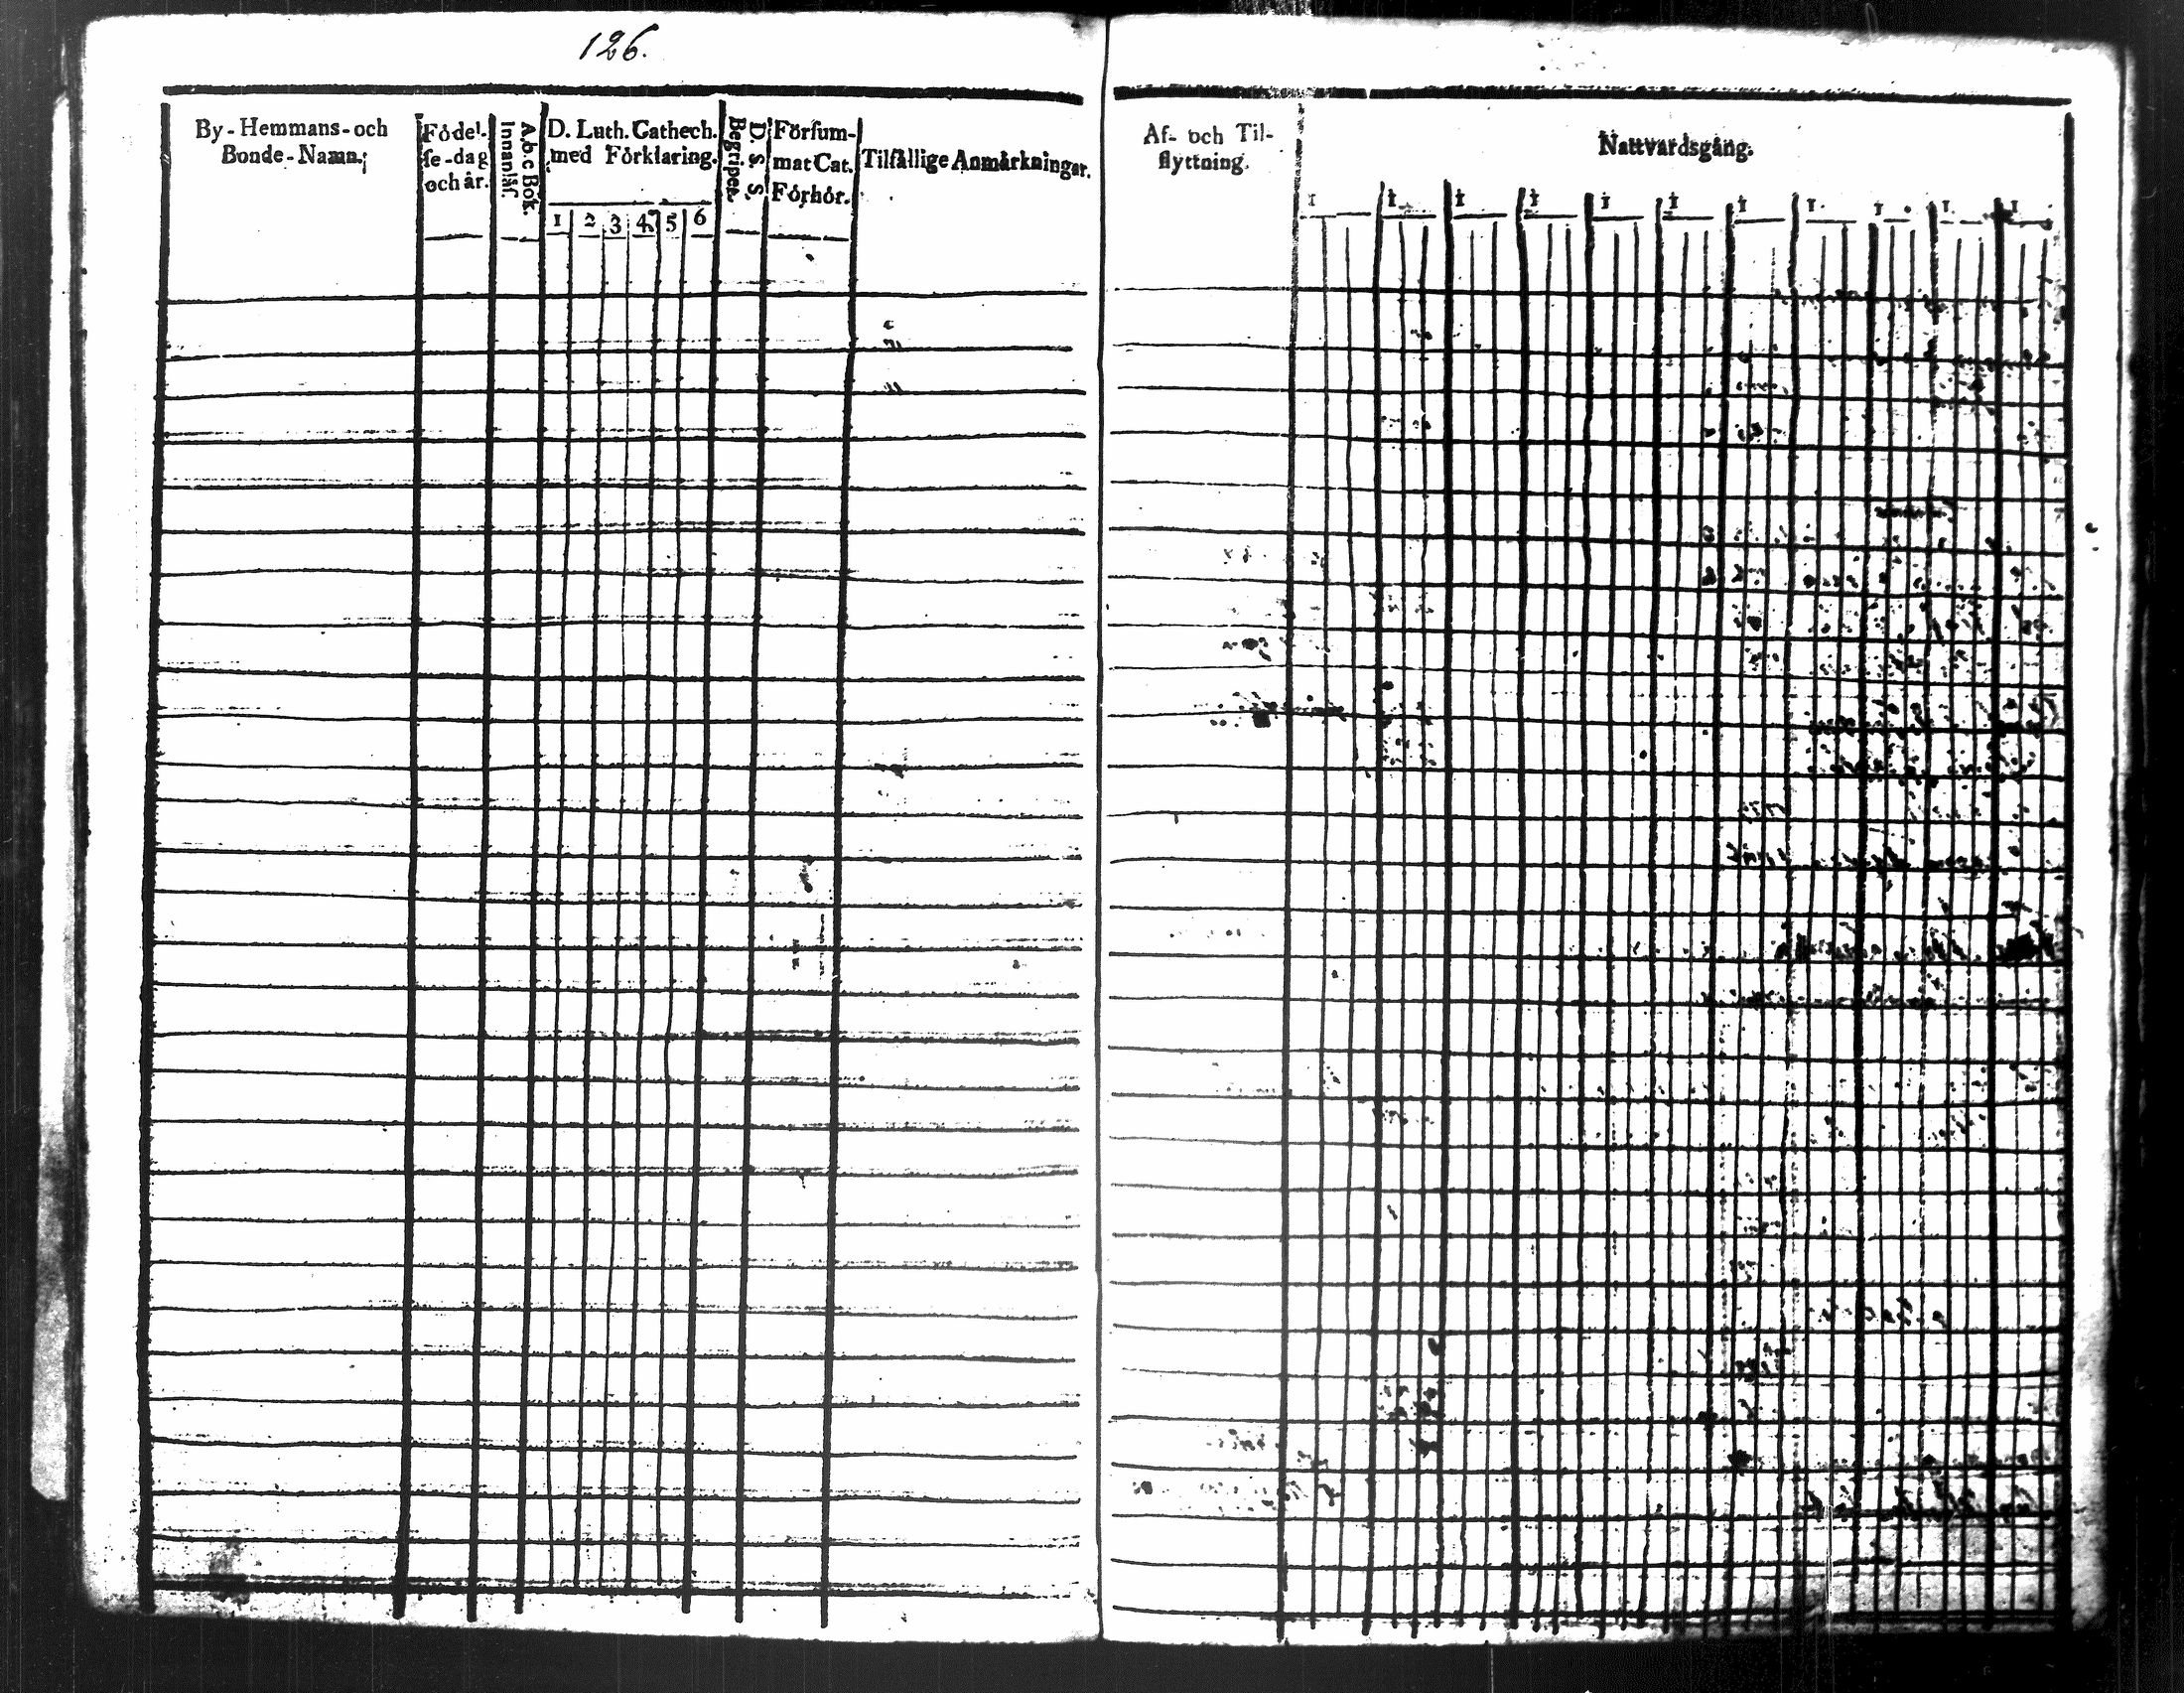 126.
By-Hemmans-och
Bonde-Namn.
Födel-
se-dag
och år.
A.b.c Bok.
Innanläs.
D. Luth. Cathech.
med Förklaring.
1 2 3 4 5 6
D. S. S.
Begripes.
Försum-
mat Cat.
Förhör.
Tilfällige Anmärkningar.
Af- och Til-
flyttning.
Nattvardsgång.
1 1 1 1 1 1 1 1 1 1 1